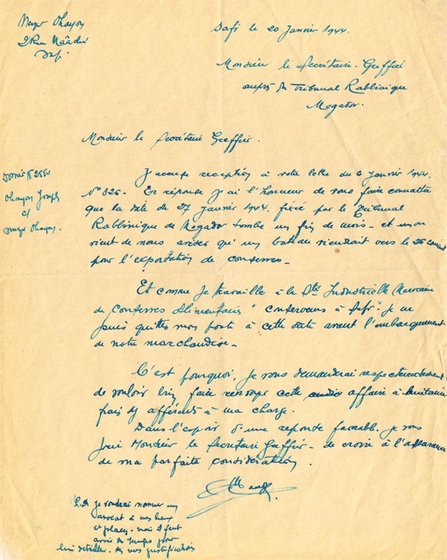 Meyer Ohayon
2 Rue
Safi
Safi le 20 Janvier 1944.
Monsieur le Secrétaire-Greffier
auprès du Tribunal Rabbinique
Mogador.
Monsieur le Secrétaire Greffier.
Dossier N° 2554
Ohayon Joseph
c/
Meyer Ohayon.
J'accuse reception à votre lettre du 6 Janvier 1944.
N° 325. En réponse J'ai l'honneur de vous faire connaître
que la date du 27 Janvier 1944. fixée par le Tribunal
Rabbinique de Mogador tombe en fin de mois - et on
vient de nous aviser qu'un bateau viendrait vers le 26
pour l'exportation de conserves.
Et comme Je travaille à la Sté Industrielle Marocaine
de Conserves Alimentaires à Safi" je ne
puis quitter mon poste à cette date avant l'embarquement
de notre marchandise.
C'est pourquoi, je vous demanderai respectueusement
de vouloir bien faire renvoyer cette affaire à
frais y afférents à ma charge.
Dans l'espoir d'une réponse favorable. Je vous
prie Monsieur le Secrétaire Greffier - de croire à l'assurance
de ma parfaite considération.
P.S. Je voudrai nommer un
avocat à mes lieux
et place, mais il faut
de temps pour
lui détailler mes justifications